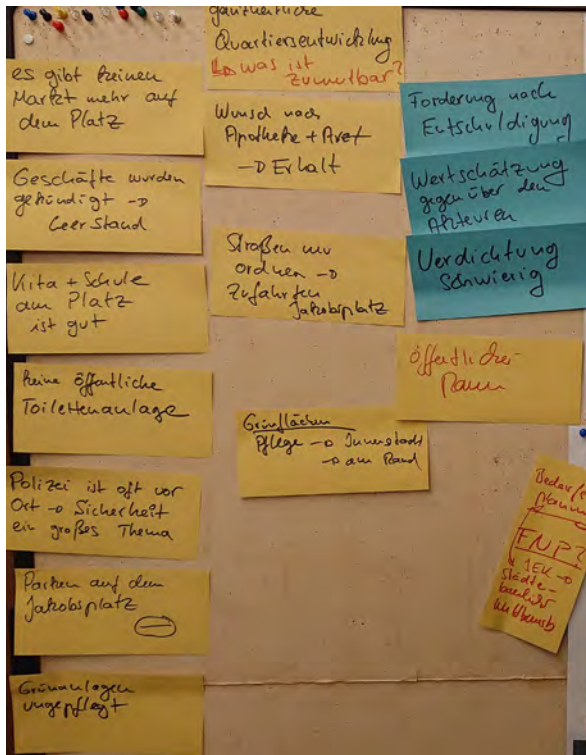 es gibt keinen
Markt mehr auf
dem Platz
Geschäfte wurden
gekündigt →
Leerstand
Kita + Schule
am Platz
ist gut
keine öffentliche
Toilettenanlage
Polizei ist oft vor
Ort → Sicherheit
ein großes Thema
Parken auf dem
Jakobsplatz
Grünanlagen
ungepflegt
ganzheitliche
Quartiersentwicklung
↳ was ist
zumutbar?
Wunsch nach
Apotheke + Arzt
→ Erhalt
Straßen neu
ordnen →
Zufahrten
Jakobsplatz
Grünflächen
Pflege → Innenstadt
→ am Rand
Forderung nach
Entschuldigung
Wertschätzung
gegenüber den
Akteuren
Verdichtung
schwierig
öffentlicher
Raum
FNP?
Städte-